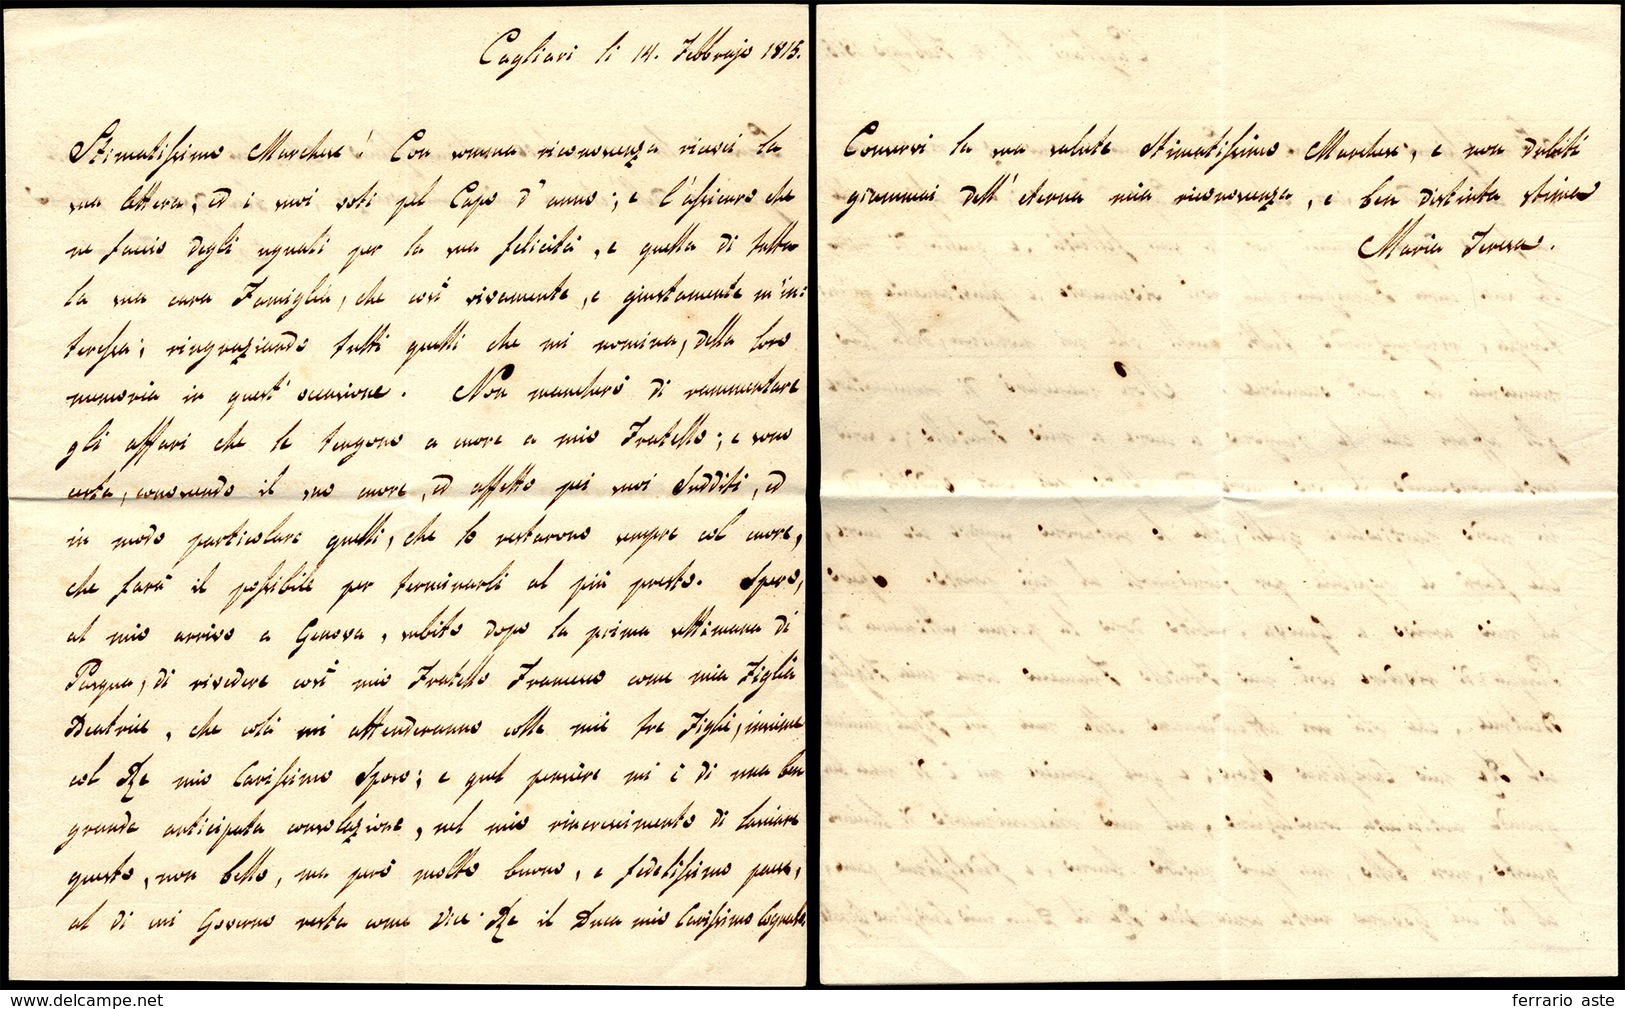 Cagliari li 14. Febbrajo 1815.
Stimatissimo Marchese! Con somma riconoscenza ricevei la
sua lettera, ed i suoi voti pel Capo d'anno; e l'assicuro che
ne faccio degli uguali per la sua felicità, e quella di tutta
la sua cara Famiglia, che così vivamente, e giustamente m'in:
teressa; ringraziando tutti quelli che mi nomina, della loro
memoria in quest'occasione. Non mancherò di rammentare
gli affari che le tengono a cuore a mio Fratello; e sono
certa, conoscendo il suo cuore, ed affetto pei suoi Sudditi, ed
in modo particolare quelli, che lo restarono sempre col cuore,
che farà il possibile per terminarli al più presto. Spero,
al mio arrivo a Genova, subito dopo la prima settimana di
Pasqua, di rivedere così mio Fratello Francesco come mia Figlia
Beatrice, che colà mi attenderanno colle mie tre Figlie, insieme
col Re mio Carissimo Sposo; e quel pensiere mi è di una ben
grande anticipata consolazione, nel mio rincrescimento di lasciare
questo, non bello, ma però molto buono, e fedelissimo paese,
al di cui Governo resta come Vice-Re il Duca mio Carissimo Cognato.
Conservi la sua salute Stimatissimo Marchese, e non dubiti
giammai dell'eterna mia riconoscenza, e ben distinta stima
Maria Teresa.
delcampe.net
ferrario aste